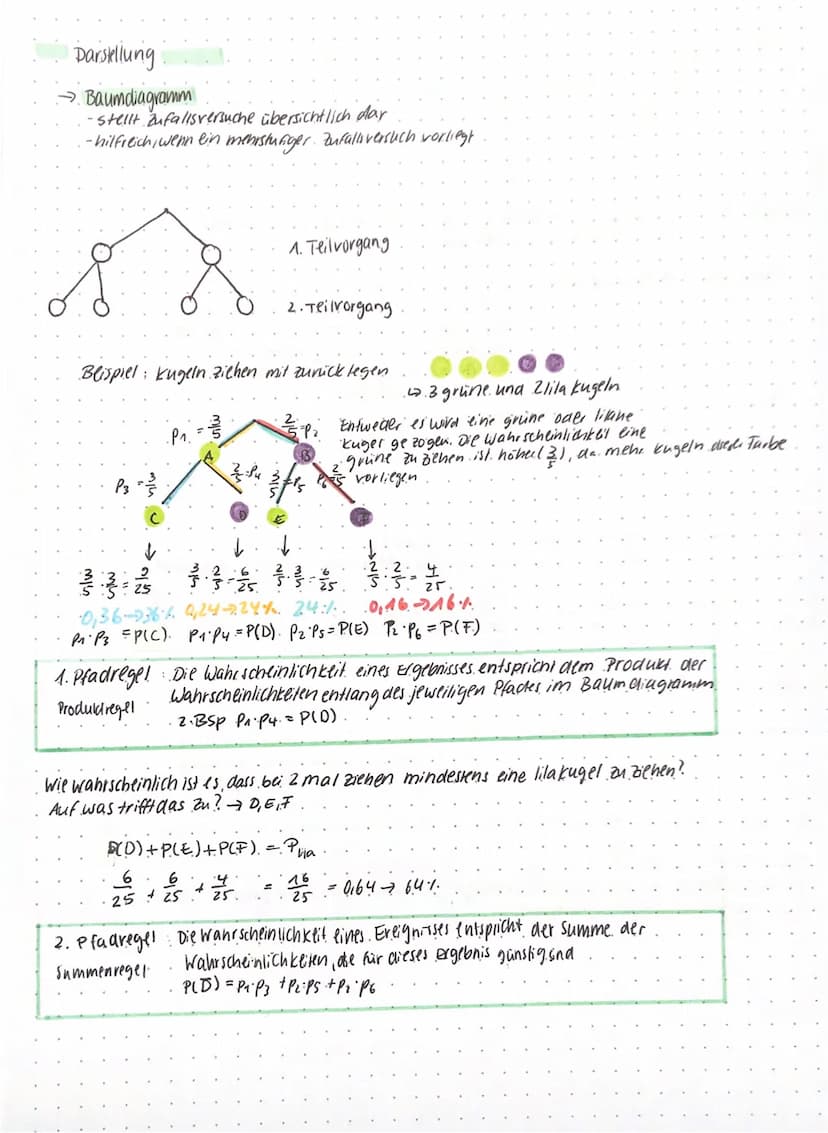 Darstellung
→ Baumdiagramm
- stellt Zufallsversuche übersichtlich dar
- hilfreich, wenn ein mehrstufiger Zufallsversuch vorliegt
1. Teilvorgang
2. Teilvorgang
Beispiel: Kugeln ziehen mit zurücklegen
↳ 3 grüne und 2 lila Kugeln
P1 = 3/5 2/5 = P2
Entweder es wird eine grüne oder lilane
Kugel gezogen. Die Wahrscheinlichkeit eine
grüne zu ziehen ist höher (3/5), da mehr Kugeln dieser Farbe
vorliegen
A B
P3 = 3/5 2/5 = P4 3/5 = P5 P6 = 2/5
C D E F
↓ ↓ ↓ ↓
3/5 · 3/5 = 2/25 3/5 · 2/5 = 6/25 2/5 · 3/5 = 6/25 2/5 · 2/5 = 4/25
0,36 → 36% 0,24 → 24% 24% 0,16 → 16%
P1 · P3 = P(C) P1 · P4 = P(D) P2 · P5 = P(E) P2 · P6 = P(F)
1. Pfadregel : Die Wahrscheinlichkeit eines Ergebnisses entspricht dem Produkt der
Produktregel Wahrscheinlichkeiten entlang des jeweiligen Pfades im Baumdiagramm
z.BSP P1 · P4 = P(D)
Wie wahrscheinlich ist es, dass bei 2 mal ziehen mindestens eine lilakugel zu ziehen?
Auf was trifft das zu? → D, E, F
P(D) + P(E) + P(F) = Plila
6/25 + 6/25 + 4/25 = 16/25 = 0,64 → 64%
2. Pfadregel : Die Wahrscheinlichkeit eines Ereignisses entspricht der Summe der
Summenregel Wahrscheinlichkeiten, die für dieses Ergebnis günstig sind
= P1 · P3 + P2 · P5 + P2 · P6